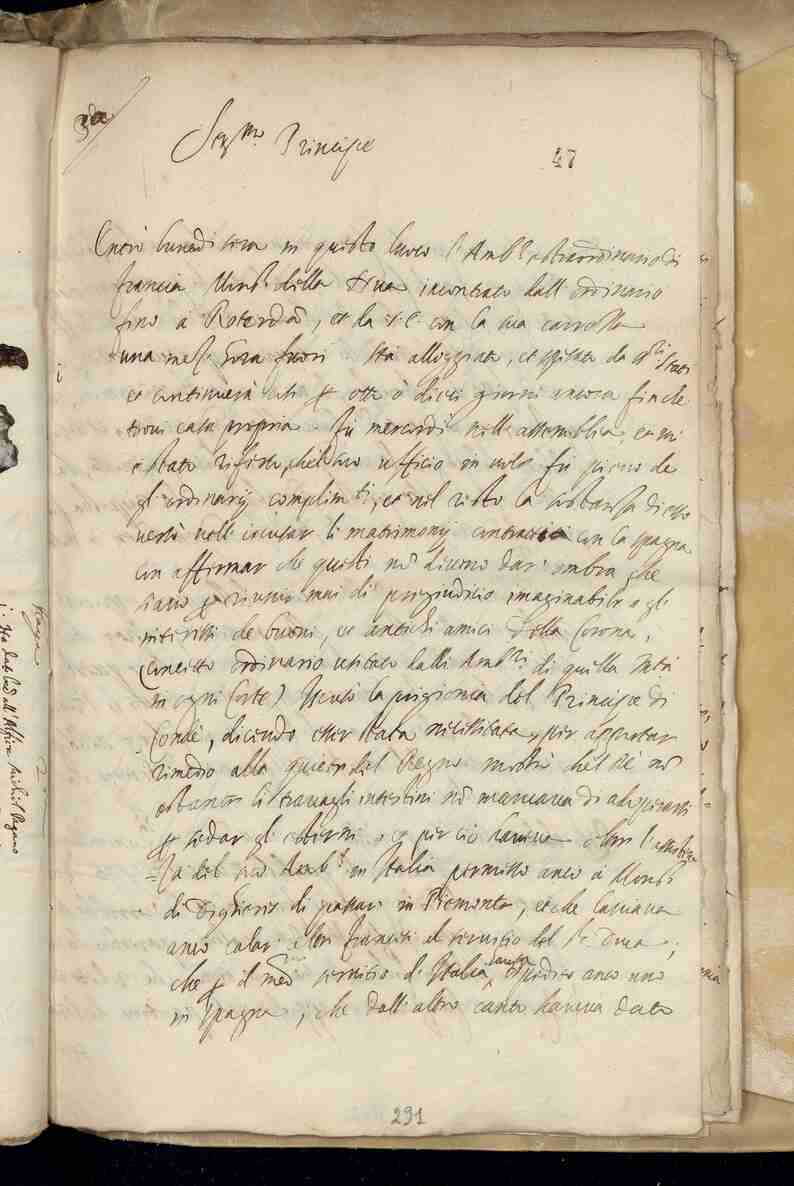 3.da
Ser.mo Principe
47
Entrò lunedì sera in questo luoco l'Amb.r estraordinario di
Francia Mons.r della Nua incontrato dall'ordinario
fino à Roterdã, et da V.E. con la sua carrozza
una mezz' hora fuori. Stà alloggiato, et spesato da q.ti Stati
et continuerà così p otto ò dieci giorni ancora finche
trovi casa propria. Fù mercordì nell'assemblea, et mi
è stato riferto, che'l suo ufficio in voce fù pieno de
gl'ordinarij complim.ti, et nel resto la sostanza di esso
versò nell'iscusar li matrimonij contratti con la Spagna
con affirmar che questi nõ devono dar ombra, che
siano p riuscir mai di pregiudicio imaginabile a gl'
interessi de buoni, et antichi amici della Corona,
(concetto ordinario usitato dalli Amb.ri di quella M.tà
in ogni Corte) Iscusò la prigionia del Principe di
Condè, dicendo esser stata necessitata, per apportar
rimedio alla quiete del Regno mostrò che'l Rè nõ
ostante li travagli intestini nõ mancava di adoperarsi
p sedar gl'esterni, et per ciò haveva oltre l'assisten
za del suo Amb.r in Italia permesso anco à Mons.r
di Dighieres di passar in Piemonte, et che lasciava
anco calar altri francesi al servitio del s.r Duca;
che p il med.o servitio d'Italia haveva spedito anco uno
in Spagna, che dall'altro canto haveva dato
291